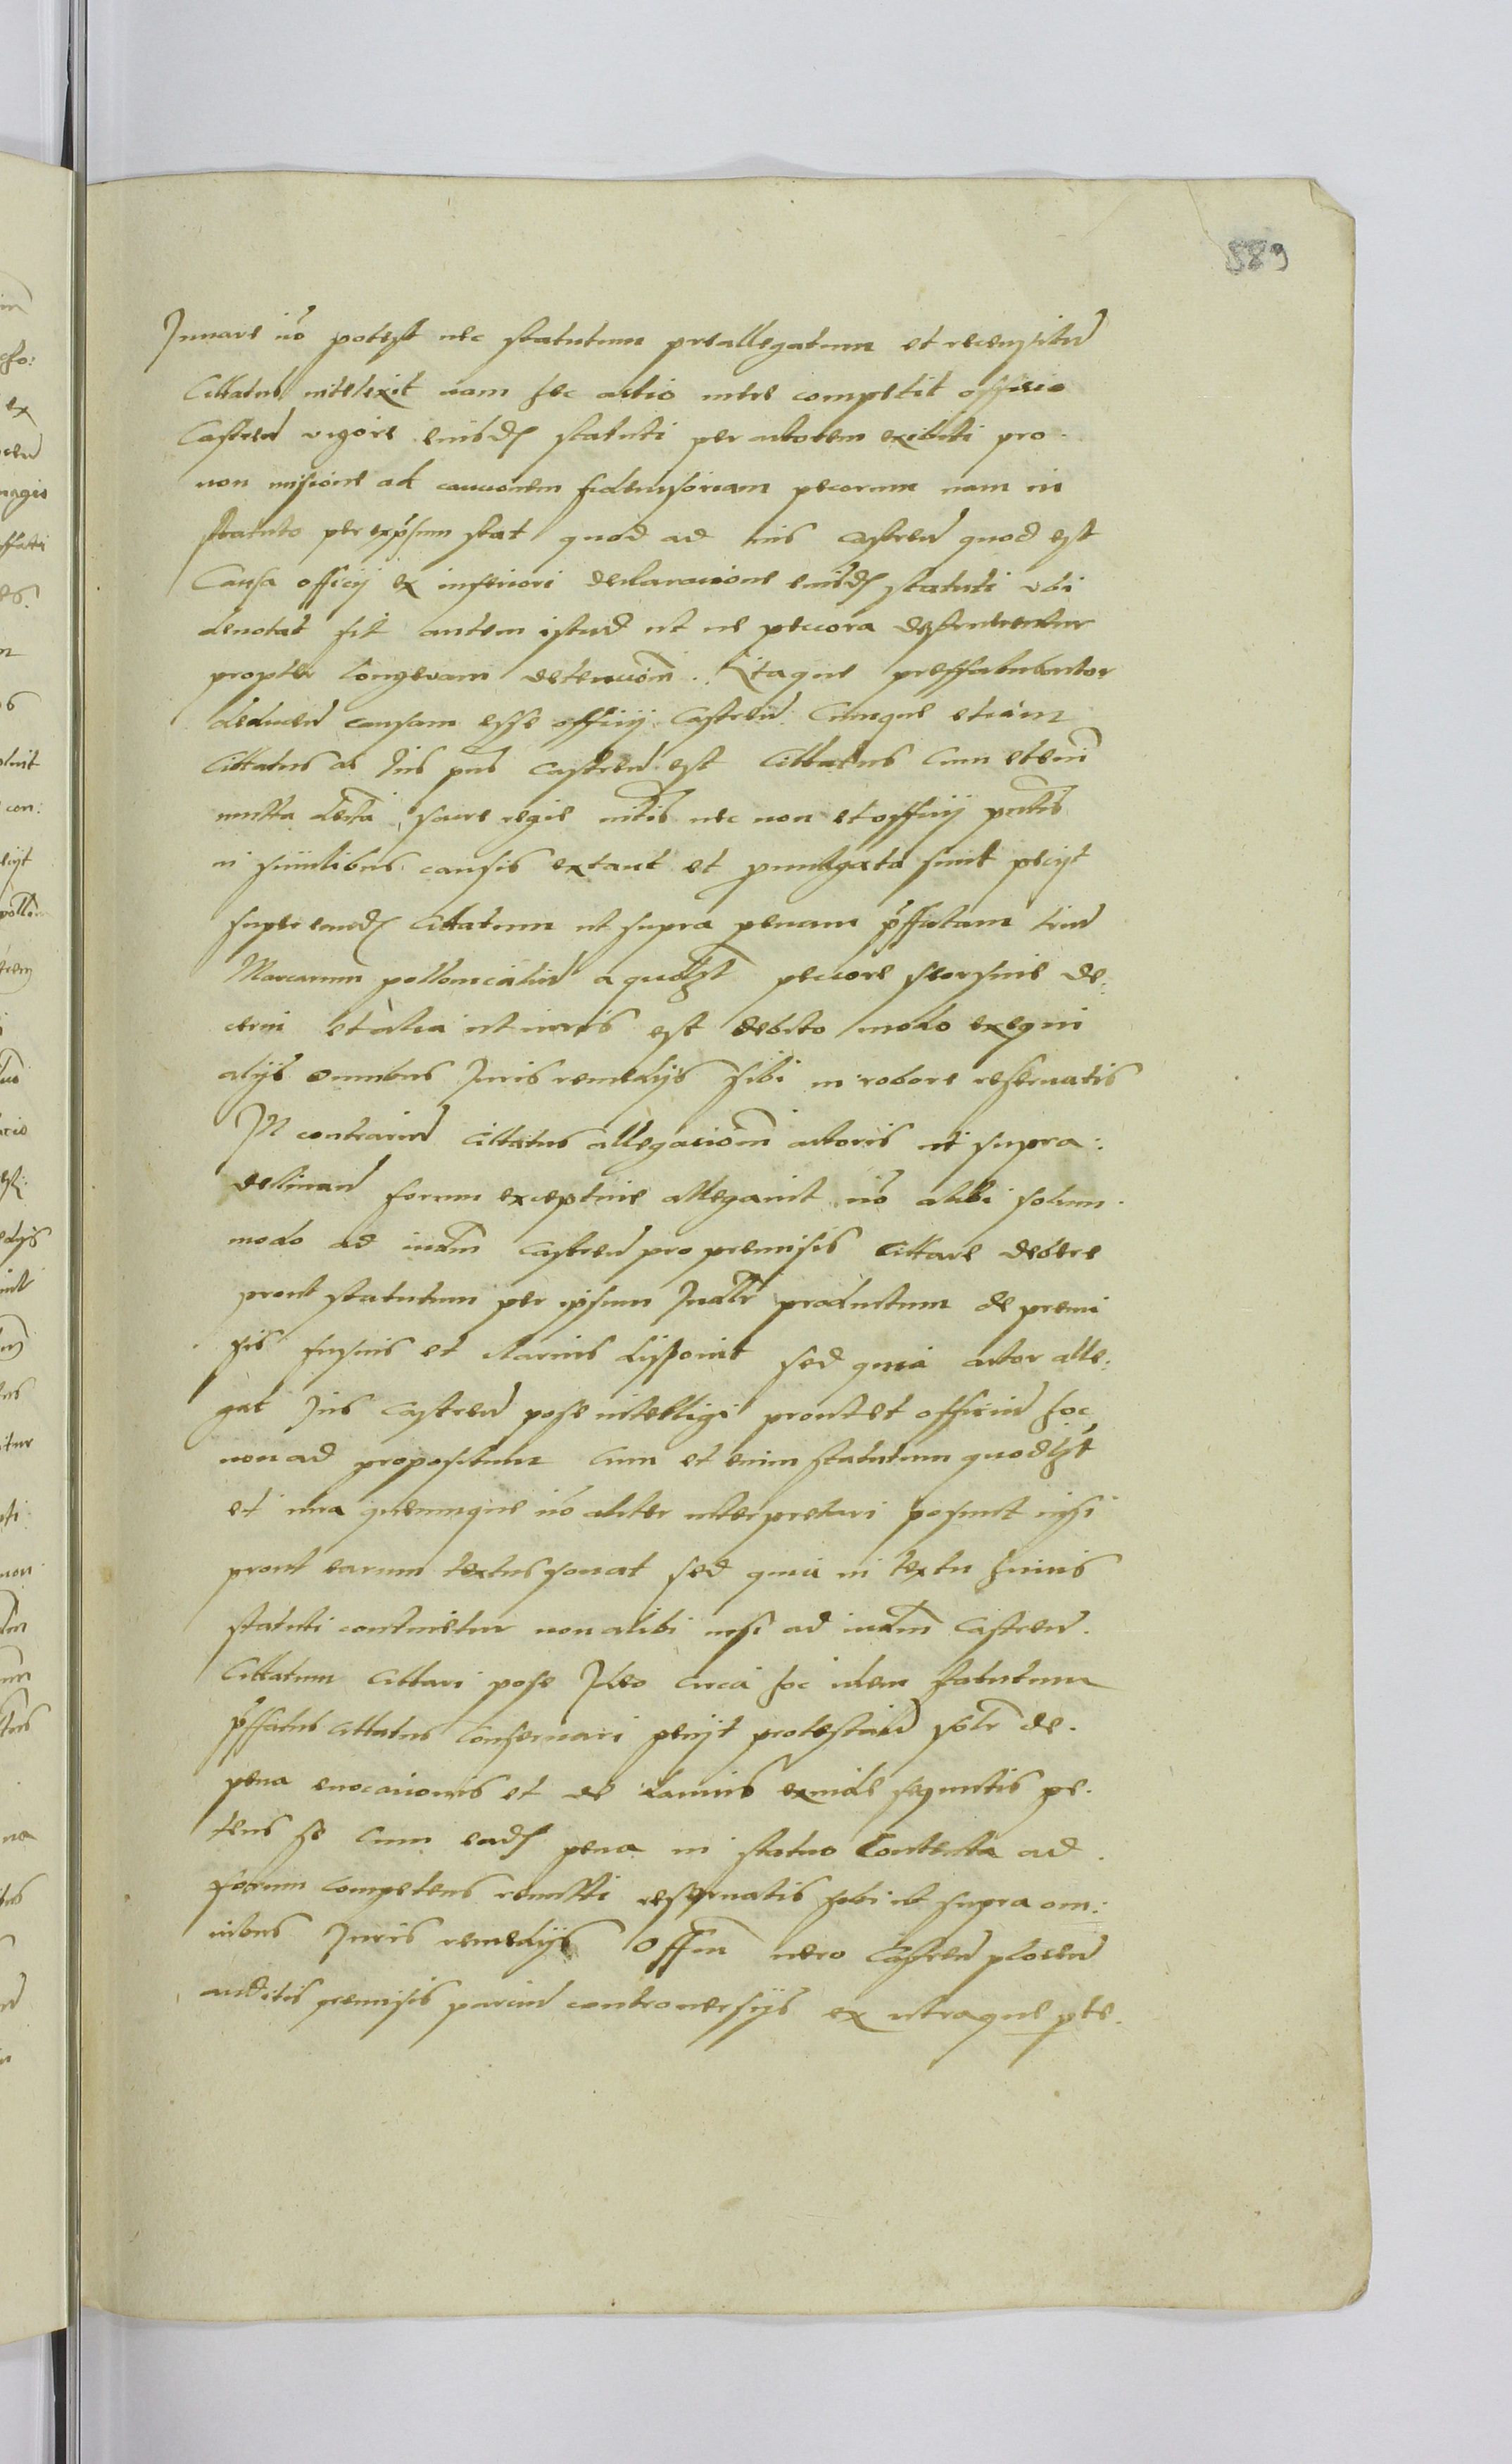 589
Juuare nō potest nec statutum preallegatum et recensitu̅
Cittatus intelexit nam hec actio mere competit officio
Castren̅ vigore eiusdē statuti per actorem exibiti pro
non misione ad caucionem fideiusoriam pecorum nam in
statuto per exp̅sum stat quod ad ius castren̅ quod est
Causa officij ex inferiori declaracione eiusdē statuti vbi
denotat sit autem istud ut ne peccora destruerentur
propter longevam detencion̅. Itaque preffatus actor
deducen̅ causam esse officij Castren̅. Cumque etiam
Cittatus ad Jus pn̅s castren̅ est Cittatus Cum eteni̅
multa decta̅ sacre regie mt̅is nec non et officij pn̅tis
in similibus causis extant et pmulgata sunt pecijt
super eundē Cittatum ut supra penam p̅ffatam triu̅
Marcarum pollonicaliu̅ a quolz̅t peccore seorsiue de:
cerni et alia ut iuris est debito modo exequi
alijs omnibus Juris remedijs sibi in robore reseruatis
In contrariu̅ Cittatus allegacion̅ actoris ut supra:
declinan̅ forum exceptiue allegauit nō alibi solum
modo ad iud̅m castren̅ pro premisis Cittare debere
prout statutum per ipsum Jud̅lr productum de premi
sis fusius et clarius disponit sed quia actor alle:
gat Jus castren̅ pose intelligi prout et officiu̅ hoc
non ad propositum Cum et enim statutum quodlz̅t
et iura quecumque nō aliter interpretari posunt nisi
prout earum textus sonat sed quia in textu huius
statuti continetur non alibi nisi ad iud̅m Castren̅.
Cittatum Cittari pose Ideo circa hoc idem statutum
p̅ffatus cittatus Conseruari pecijt protestan̅ sol̅r de
pena euocacionis et de damnis exinde sequutis pe:
tens se Cum eadē pena in statuo Contenta ad
forum Competens remitti reseruatis sibi ut supra om:
nibus Juris remedijs Offm̅ uero Castren̅ plocen̅
auditis premisis parciu̅ controuersijs ex utraque pte.